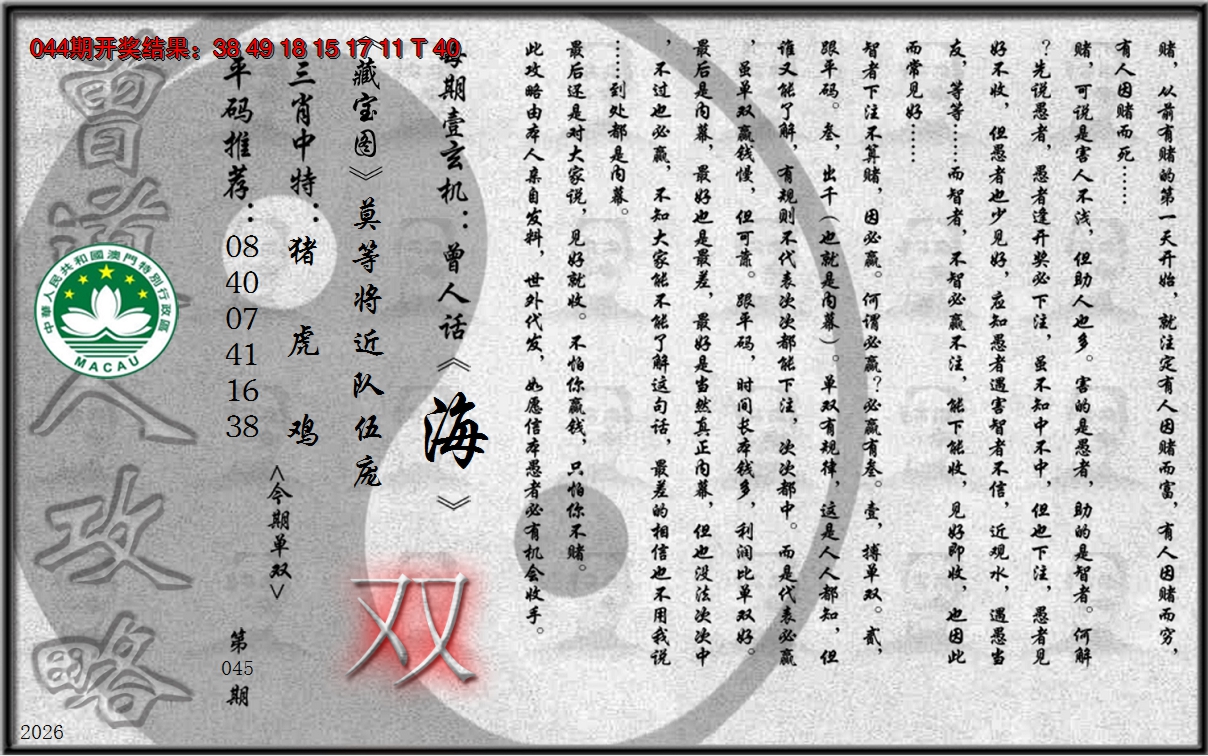 044期开奖结果：38 49 18 15 17 11 T 40
赌，从前有赌的第一天开始，就注定有人因赌而富，有人因赌而穷，
有人因赌而死……
赌，可说是害人不浅，但助人也多。害的是愚者，助的是智者。何解
？先说愚者，愚者逢开奖必下注，虽不知中不中，但也下注，愚者见
好不收，但愚者也少见好，应知愚者遇害智者不信，近观水，遇愚当
友，等等……而智者，不智必赢不注，能下能收，见好即收，也因此
而常见好……
智者下注不算赌，因必赢。何谓必赢？必赢有叁。壹，搏单双。贰，
跟平码。叁，出千（也就是内幕）。单双有规律，这是人人都知，但
谁又能了解，有规则不代表次次都能下注，次次都中。而是代表必赢
，虽单双赢钱慢，但可靠。跟平码，时间长本钱多，利润比单双好。
最后是内幕，最好也是最差，最好是当然真正内幕，但也没法次次中
，不过也必赢，不知大家能不能了解这句话，最差的相信也不用我说
……到处都是内幕。
最后还是对大家说，见好就收。不怕你赢钱，只怕你不赌。
此攻略由本人亲自发料，世外代发，如愿信本愚者必有机会收手。
每期壹玄机：曾人话《海》
《藏宝图》莫等将近队伍庞
三肖中特：猪 虎 鸡
<今期单双>
双
平码推荐：
08
40
07
41
16
38
第
045
期
曾道人攻略
中華人民共和國澳門特別行政區
MACAU
2026